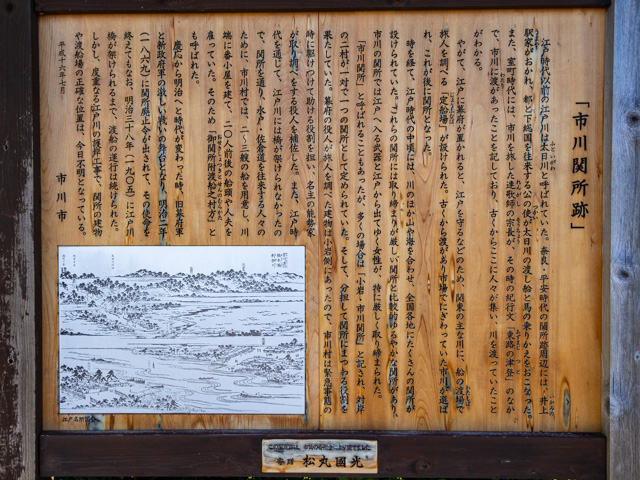 「市川関所跡」
江戸時代以前の江戸川は太日川と呼ばれていた。奈良・平安時代の関所跡周辺には、井上
駅家がおかれ、都と下総国を往来する公の使が太日川の渡し船と馬の乗りかえをおこなった。
また、室町時代には、市川を旅した連歌師の宗長が、その時の紀行文『東路の津登』のなか
で、市川に渡があったことを記しており、古くからここに人々が集い、川を渡っていたこと
がわかる。
やがて、江戸に幕府が置かれると、江戸を守るなどのため、関東の主な川に、船の渡場で
旅人を調べる「定船場」が設けられた。古くから渡があり市場でにぎわっていた市川が選ば
れ、これが後に関所となった。
時を経て、江戸時代の中頃には、川のほか山や海を合わせ、全国各地にたくさんの関所が
設けられていた。これらの関所には取り締まりが厳しい関所と比較的ゆるやかな関所があり、
市川の関所では江戸へ入る武器と江戸から出てゆく女性が、特に厳しく取り締まられた。
「市川関所」と呼ばれることもあったが、多くの場合は「小岩・市川関所」と記され、対岸
の二村が一対で一つの関所として定められていた。そして、分担して関所にまつわる役割を
果たしていた。幕府の役人が旅人を調べた建物は小岩側にあったので、市川村は緊急事態の
時に駆けつけて助ける役割を担い、名主の能勢家
が取り調べをする役人を補佐した。また、江戸時
代を通じて、江戸川には橋が架けられなかったの
で、関所を通り、水戸・佐倉道を往来する人々の
ために、市川村では、二～三艘の船を用意し、川
端に番小屋を建て、二〇人前後の船頭や人夫を
雇っていた。そのため「御関所附渡船之村方」と
も呼ばれた。
慶応から明治へと時代が変わった時、旧幕府軍
と新政府軍の激しい戦いの舞台となり、明治二年
（一八六九）に関所廃止令が出されて、その使命を
終えてもなお、明治三十八年（一九〇五）に江戸川
橋が架けられるまで、渡船の運行は続けられた。
しかし、度重なる江戸川の護岸工事で、関所の建物
や渡船場の正確な位置は、今日不明となっている。
平成十六年七月
市川市
江戸名所図会
寄贈 松丸國光